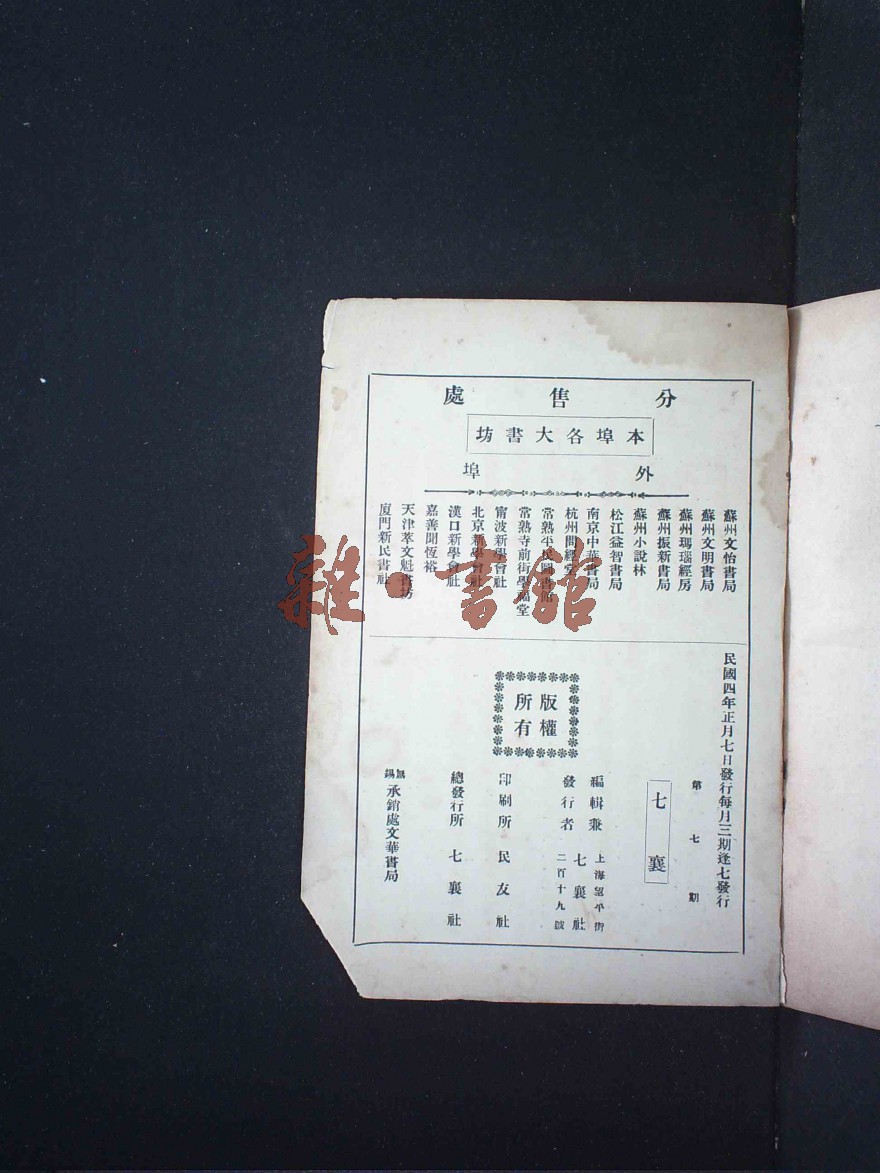 分售處
本埠各大書坊
外埠
蘇州文怡書局
蘇州文明書局
蘇州瑪瑙經房
蘇州振新書局
蘇州小說林
松江益智書局
南京中華書局
杭州問經堂
常熟平民圖書館
常熟寺前街學福堂
甯波新學會社
北京新學會社
漢口新學會社
嘉善聞恆裕
天津萃文魁書坊
廈門新民書社
民國四年正月七日發行每月三期逢七發行
第七期
七襄
版權所有
編輯兼發行者
上海望平街二百十九號
七襄社
印刷所 民友社
總發行所 七襄社
無錫承銷處文華書局
雜·書館